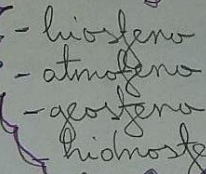 - biosfera
- atmosfera
- geosfera
- hidrosfe